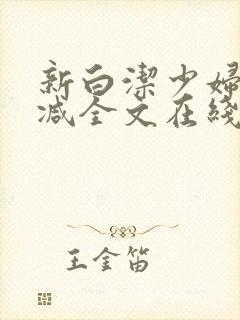 新白潔少婦
减全文在綫
王金笛